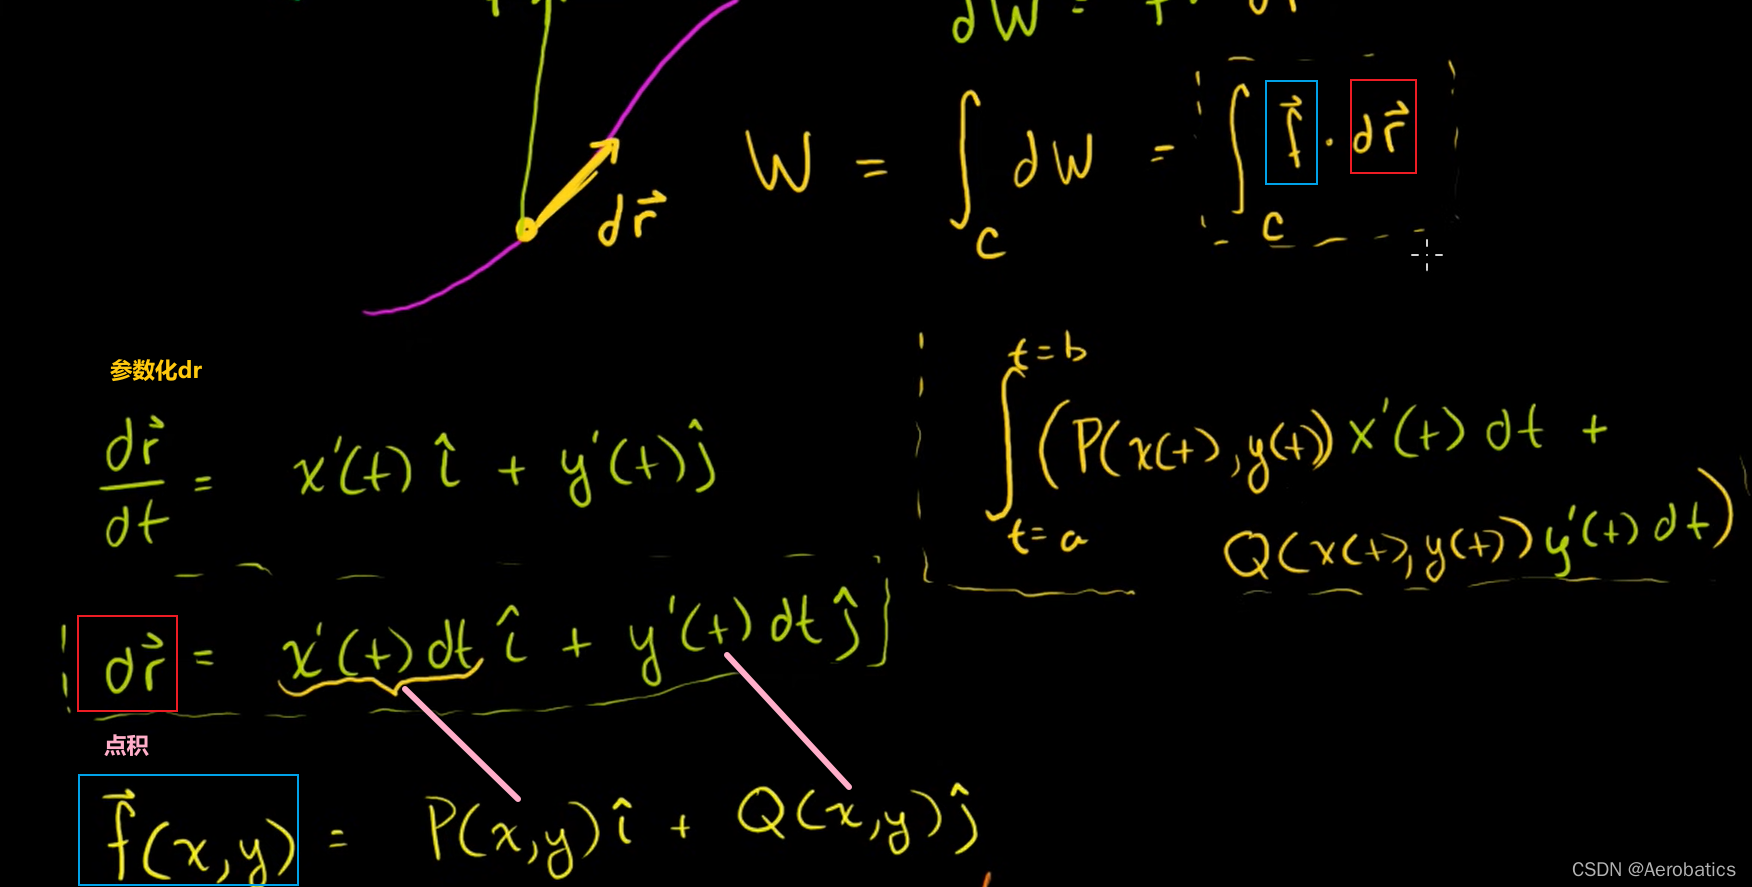 dW = f · dr
dr⃗
W = ∫_C dW = ∫_C f⃗ · dr⃗
参数化dr
dr⃗/dt = x'(t) î + y'(t) ĵ
∫_{t=a}^{t=b} (P(x(t),y(t)) x'(t) dt +
Q(x(t),y(t)) y'(t) dt)
dr⃗ = x'(t) dt î + y'(t) dt ĵ
点积
f⃗(x,y) = P(x,y) î + Q(x,y) ĵ
CSDN @Aerobatics